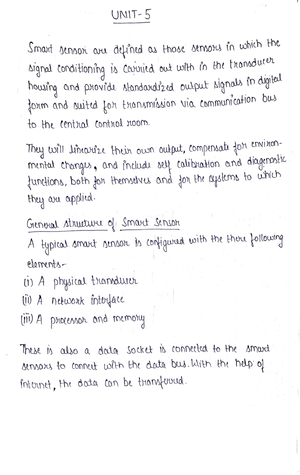 UNIT-5
Smart sensor are defined as those sensors in which the
signal conditioning is carried out with in the transducer
housing and provide standardized output signals in digital
form and suited for transmission via communication bus
to the central control room.
They will linearize their own output, compensate for environ-
mental changes, and include self calibration and diagenostic
functions, both for themselves and for the systems to which
they are applied.
General structure of Smart Sensor
A typical smart sensor is configured with the three following
elements-
(i) A physical transducer
(ii) A network interface
(iii) A processor and memory
There is also a data socket is connected to the smart
sensors to connect with the data bus. With the help of
internet, the data can be transferred.